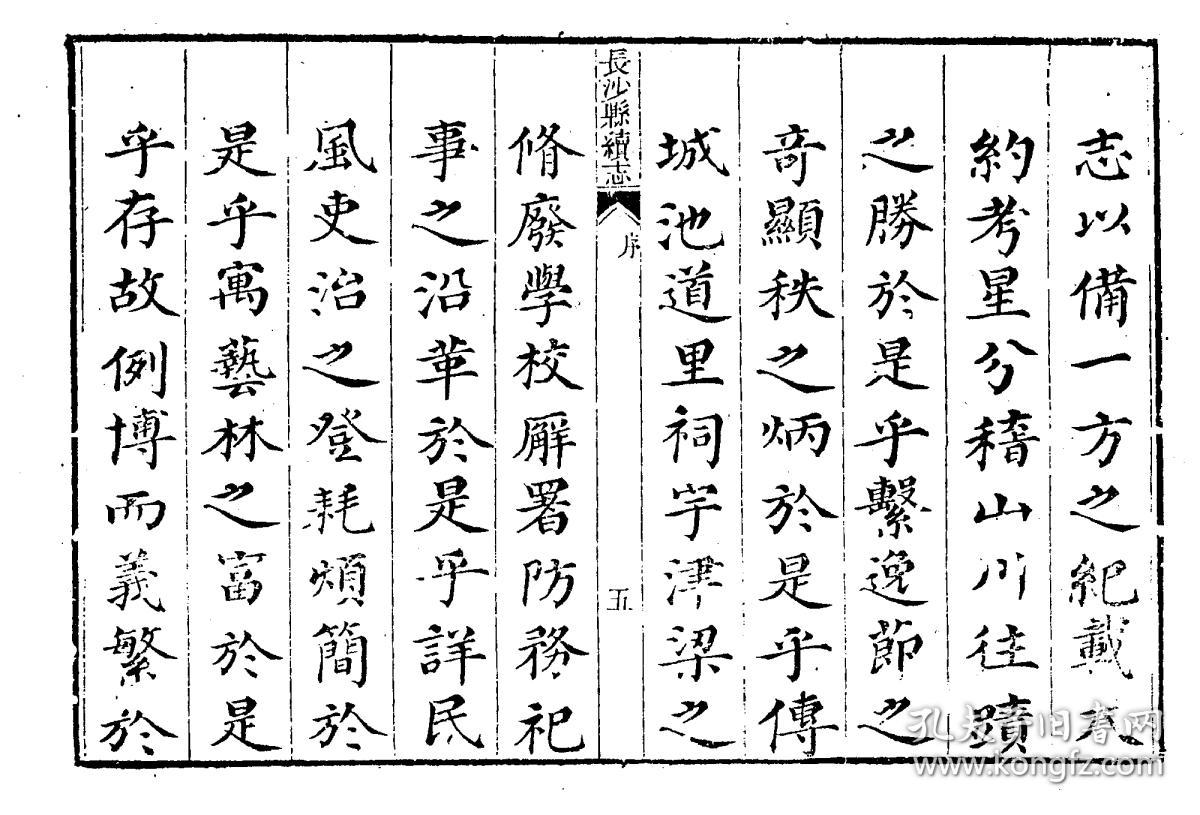 志以備一方之紀載大
約考星分稽山川往蹟
之勝於是乎繫逸節之
奇顯秩之炳於是乎傳
城池道里祠宇津梁之
長沙縣續志
序
五
脩廢學校廨署防務祀
事之沿革於是乎詳民
風吏治之登耗煩簡於
是乎寓藝林之富於是
乎存故例博而義繁於
孔夫子旧书网
www.kongfz.com